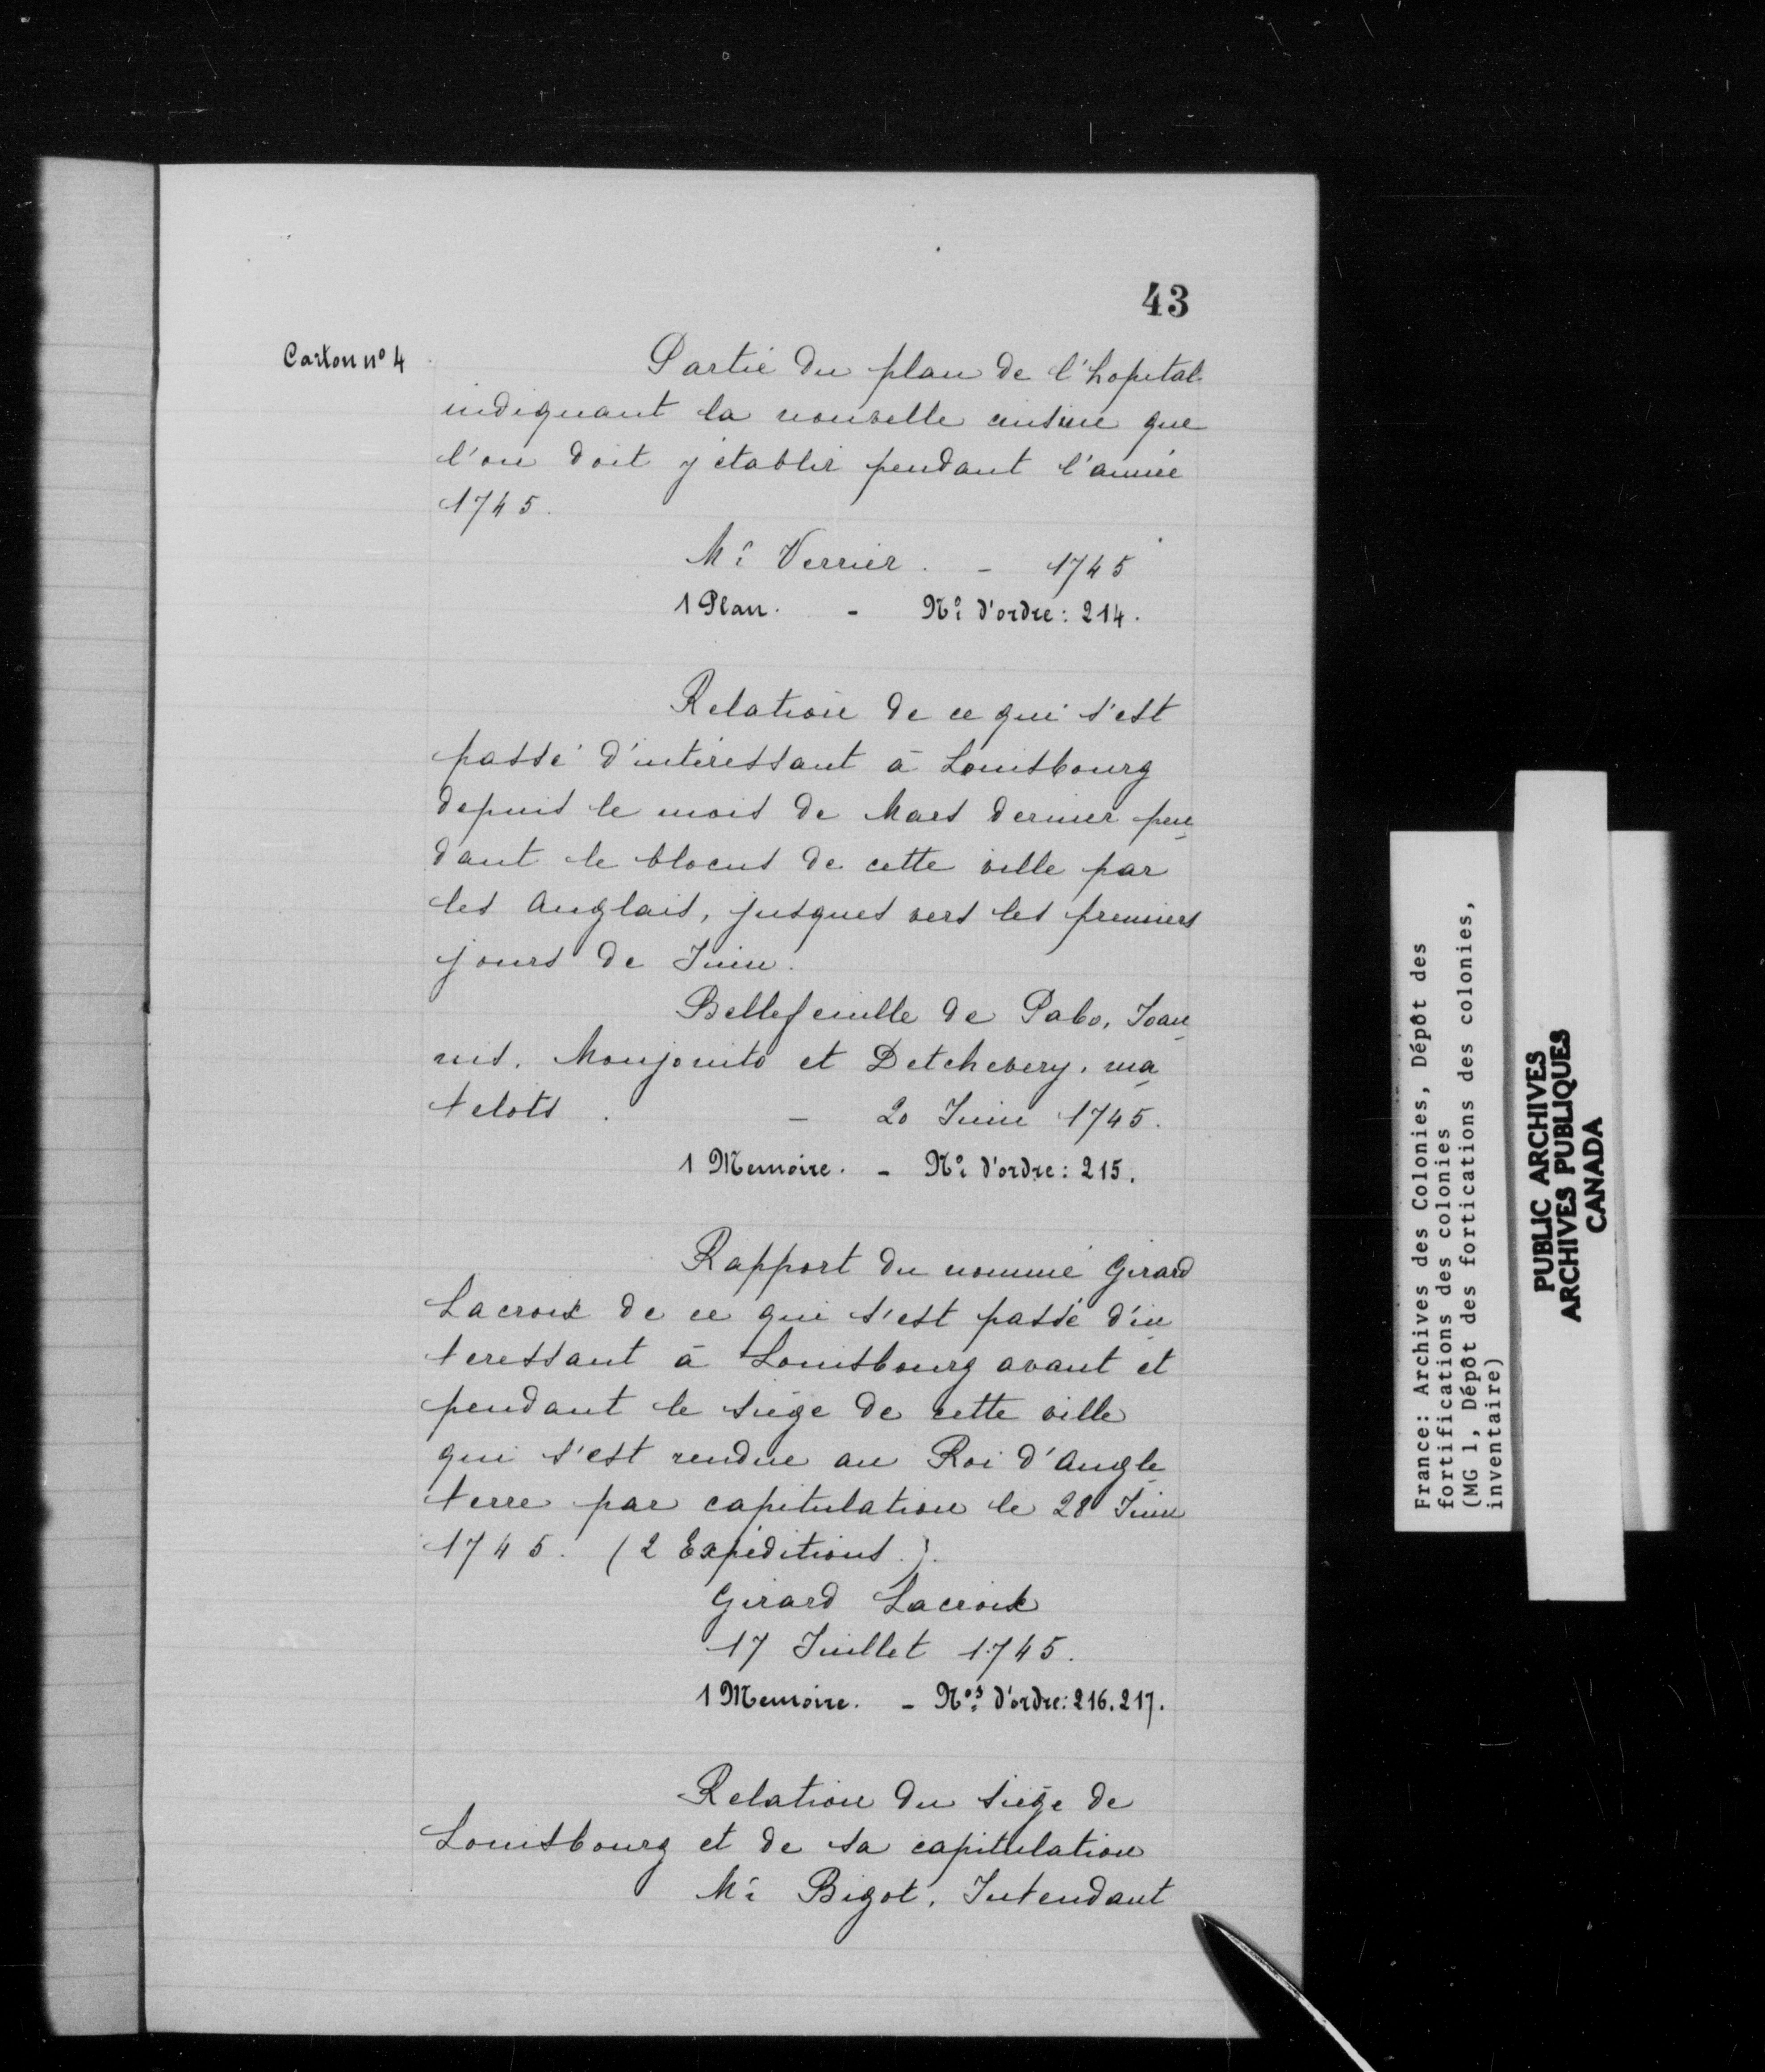 43
Carton nº 4
Partie du plan de l'hopital
indiquant la nouvelle cuisine que
l'on doit y établir pendant l'année
1745.
Mr Verrier. - 1745
1 Plan. - Nº d'ordre: 214.
Relation de ce qui s'est
passé d'intéressant à Louisbourg
depuis le mois de Mars dernier pen
dant le blocus de cette ville par
les Anglais, jusques vers les premiers
jours de Juin.
Bellefeuille de Pabo, Joan
nis, Monjonito et Detchevery, ma
telots. - 20 Juin 1745.
1 Memoire. - Nº d'ordre: 215.
Rapport du nommé Girard
Lacroix de ce qui s'est passé d'in
teressant à Louisbourg avant et
pendant le siège de cette ville
qui s'est rendue au Roi d'Angle
terre par capitulation le 28 Juin
1745. (2 Expéditions.).
Girard Lacroix
17 Juillet 1745.
1 Memoire. - Nos d'ordre: 216.217.
Relation du siège de
Louisbourg et de sa capitulation
Mr Bigot, Intendant
France: Archives des Colonies, Dépôt des
fortifications des colonies
(MG 1, Dépôt des fortications des colonies,
inventaire)
PUBLIC ARCHIVES
ARCHIVES PUBLIQUES
CANADA